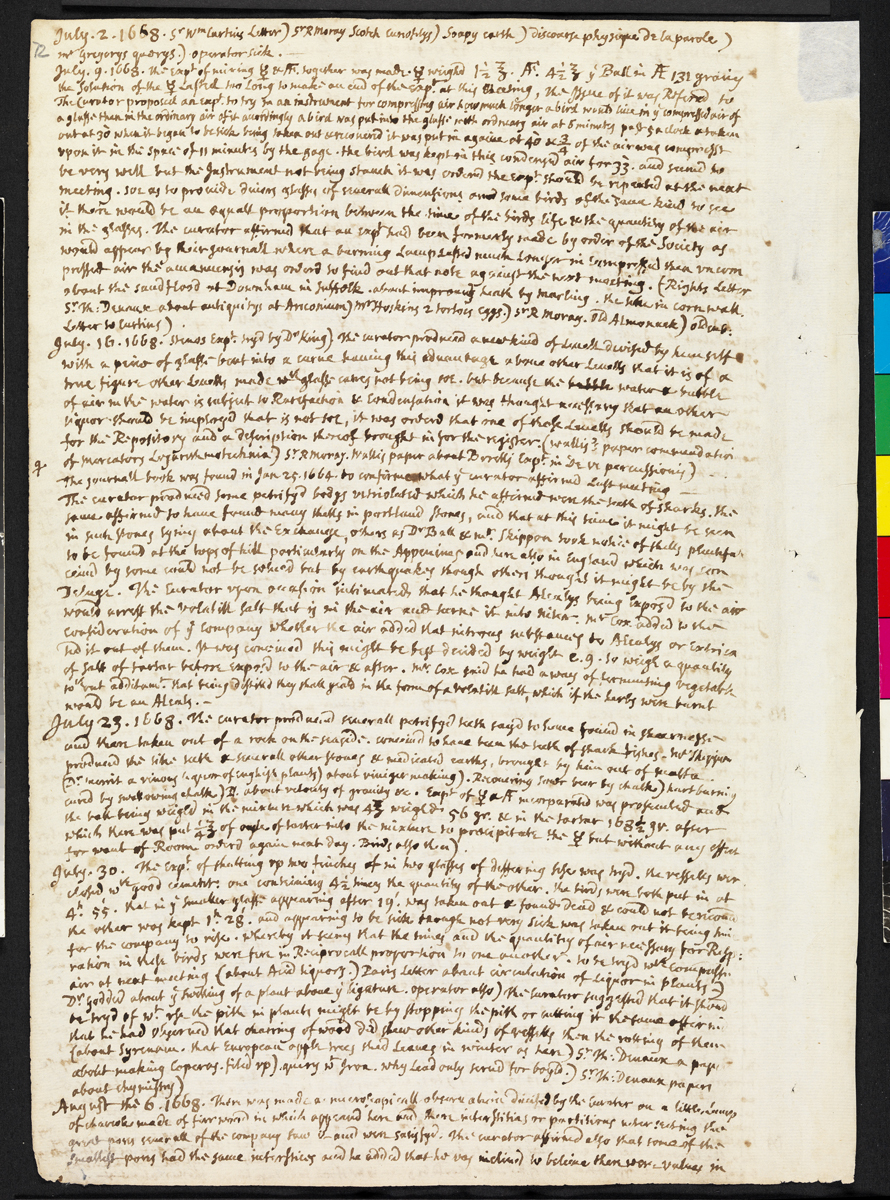 July. 2. 1668. Sr Wm Curtius Letter) Sr R Moray Scotch curiositys) Soapy earth) discourse physique de la parole)
mr Gregorys querys.) operator sick.
July. 9. 1668. the Expt of mixing ☿ & Æ. together was made. ☿ weighd 1½ ℥. Æ. 4½ ℥ ye Ball in Æ 131 grains
the solution of the ☿ Lasted too Long to make an end of the Expt. at this meeting, the Issue of it was Referd to
The Curator proposed an expt. to try in an instrument for compressing air how much longer a bird would live in ye compressed air of
a glasse than in the ordinary air of it accordingly a bird was put into the glasse with ordinary air at 6 minutes past 5 a clock & taken
out at 30 when it began to be sick being taken out & recouerd it was put in againe at 40 & ¾ of the air was comprest
vpon it in the space of 11 minutes by the gage. the bird was kept in this condensed air for 33. and seemd to
be very well but the Instrument not being staunch it was orderd the Expt should be repeated at the next
meeting. soe as to prouide diuers glasses of seuerall dimentions and some birds of the same kind to see
if there would be an equall proportion between the time of the birds life & the quantity of the air
in the glasses. The curator affirmd that an Expt had been formerly made by order of the Society as
would appear by their Journall where a burning Lamp Lasted much Longer in Compressed than vncom
pressed air the amanuensis was orderd to find out that note against the next meeting. (Wrights Letter
about the sand flood at Downham in Suffolk. about improuing heath by marling. the in cornwall.
Sr Th: Deuaux about antiquitys at Ariconium) Mr Hoskins 2 tortois eggs.) Sr R Moray. Old Almanack) olding:
Letter to Curtius).
July. 16. 1668. Stenos Expt. tryd by Dr King) The curator produced a new kind of Leuell deuised by himself
with a peice of glasse bent into a curue hauing this advantage aboue other Leuells that it is of a
true figure other Leuells made wth glasse canes not being soe. but because the water & bubble
of air in the water is subject to Rarefaction & Condensation it was thought necessary that another
liquor should be imployed that is not soe, it was orderd that one of these Leuells should be made
for the Repository and a description thereof brought in for the register. (wallis's paper commendation
of mercators Logarithmotechnia) Sr R Moray. Wallis paper about Borelli Expt. in De vi percussionis)
The Journall book was found in Jan 25. 1664. to confirme what ye curator affirmd Last meeting
The curator produced some petrifyd bodys vitriolated which he affirmed were the teeth of sharks. the
same affirmed to haue found many shells in portland stones, and that at this time it might be seen
in such stones lying about the Exchange, others as Dr Ball & mr. Skippon took notice of shells plentifully
to be found at the tops of hills particularly on the Appenines and here also in England which was con
ceiud by some could not be solued but by earthquakes though others thought it might be by the
Deluge. The Curator vpon occasion intimated that he thought Alcalys being Exposd to the air
would arrest the volatill salt that is in the air and turne it into niter. mr Cox added to the
consideration of ye Company whether the air added that nitrous substance to Alcalys or Extrica
ted it out of them. It was conceiued this might be best decided by weight e. g. to weigh a quantity
of salt of tartar before Exposd to the air & after. mr. Cox said he had a way of ferment vegetable
wthout additamt. that being distilled they shall yeald in the form of a volatill salt, which if the herbs were burnt
would be an Alcaly. -
July 23. 1668. The curator produced seuerall petrifyd teeth sayd to haue found in sheernesse
and there taken out of a rock on the seaside. conceiued to haue been the teeth of shark fishes. mr Skippon
produced the like teeth & seuerall other stones & medicated earths, brought by him out of malta.
(Dr. merrit a vinous liquor of english plants) about vinegar making). Recouering sower beer by chalk) hartburning
cured by swallowing chalk) about velocity of gravity &c. Expt of ☿ & Æ incorporated was prosecuted and
the ball being weighd in the mixture which was 4 weighd 56 gr. & in the tartar 168½ gr. after
which there was put of oyle of tarter into the mixture to precipitate the ☿ but without any effect
for want of Room orderd again next day. Birds also then)
July. 30. The Expt. of shutting vp two finches of in two glasses of differing sise was tryd. the vessells wer
closed wth good cement. one containing 4½ times the quantity of the other. the birds were both put in at
4h. 55'. that in ye smaller glasse appearing after 19'. was taken out & found dead & could not be recou
the other was kept 1h. 28'. and appearing to be sick though not very sick was taken out it being time
for the company to rise. whereby it seems that the times and the quantitys of air necessary for Resp:
ration in these birds were here in Reciprocall proportion to one another. to be tryd wth compresse
air at next meeting (about Acid liquors.) Paris Letter about circulation of Liquor in plants)
Dr. Godderd about ye swelling of a plant aboue ye ligature. operator also) The curator suggested that it should
be tryd of wt. vse the pith in plants might be by stopping the pith or cutting it the same affirm
that he had obserued that charring of wood did shew other kinds of vessells then the rotting of them
(about Syrenam. that European apple trees had Leaues in winter as here) Sr. Th: Deuaux a pape
about making Coperas. filed vp). query wt Iron. why Lead only serud for boyld.) Sr. Th: Deuaux papers
about chymistry)
August the 6. 1668. There was made a microscopicall obseruation directed by the curator on a little lump
of charcole made of firr wood in which appeard here and there interstitias or partitions intersecting the
great pores seuerall of the company saw it and were satisfyd. The curator affirmd also that some of the
smallest pores had the same interstices and he added that he was inclind to beleiue there were values in